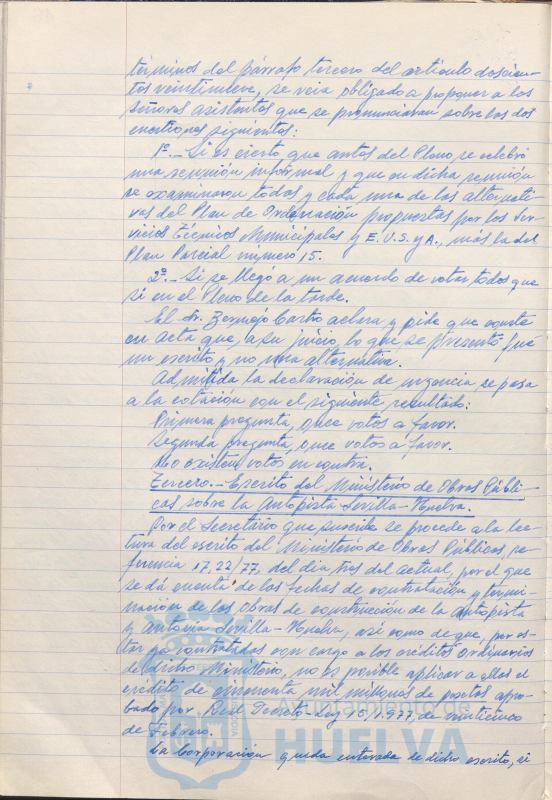 términos del párrafo tercero del artículo doscien-
tos veintinueve, se veía obligado a proponer a los
señores asistentes que se pronunciaran sobre las dos
cuestiones siguientes:
1º.- Si es cierto que antes del Pleno se celebró
una reunión informal y que en dicha reunión
se examinaron todas y cada una de las alternati-
vas del Plan de Ordenación propuestas por los Ser-
vicios Técnicos Municipales y E.U.S.y A., más la del
Plan Parcial número 15.
2º.- Si se llegó a un acuerdo de votar todos que
sí en el Pleno de la tarde.
El Sr. Bermejo Castro aclara y pide que conste
en acta que, a su juicio, lo que se presentó fué
un escrito y no una alternativa.
Admitida la declaración de urgencia se pasa
a la votación con el siguiente resultado:
Primera pregunta, once votos a favor.
Segunda pregunta, once votos a favor.
No existen votos en contra.
Tercero.- Escrito del Ministerio de Obras Públi-
cas sobre la Autopista Sevilla-Huelva.
Por el Secretario que suscribe se procede a la lec-
tura del escrito del Ministerio de Obras Públicas, re-
ferencia 17,22/77, del día tres del actual, por el que
se dá cuenta de las fechas de contratación y termi-
nación de las obras de construcción de la Autopista
y Autovia Sevilla-Huelva, así como de que, por es-
tar ya contratadas con cargo a los créditos ordinarios
de dicho Ministerio, no es posible aplicar a ellas el
crédito de cincuenta mil millones de pesetas apro-
bado por Real Decreto-Ley 15/1.977, de veinticinco
de Febrero.
La Corporación queda enterada de dicho escrito, si
Ayuntamiento de
HUELVA